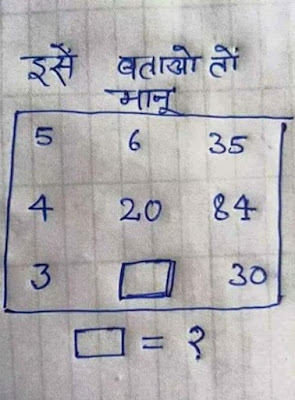 इसे बताओ तो
मानू
5 6 35
4 20 84
3 □ 30
□ = ?